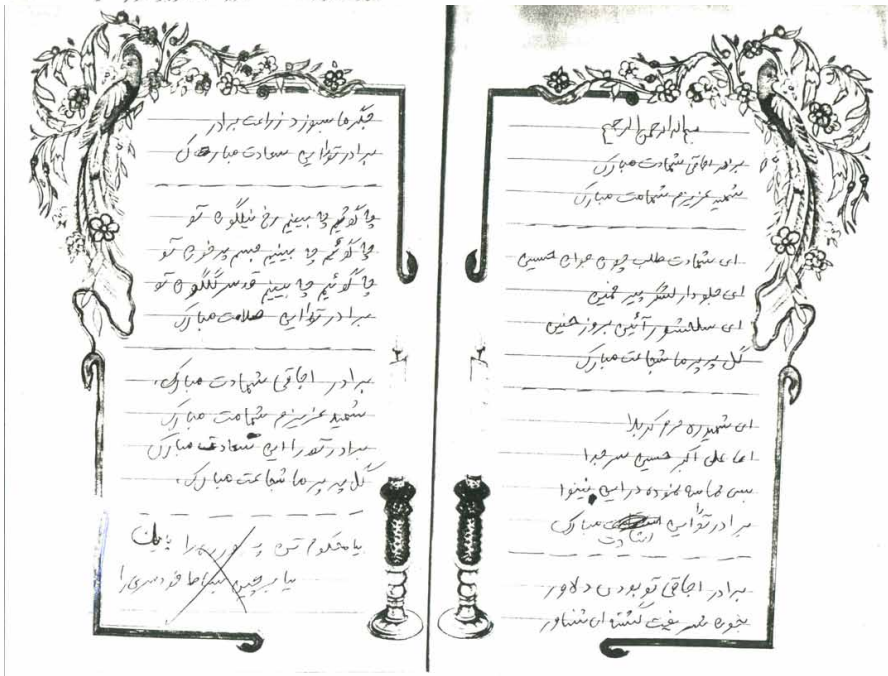 بسم الله الرحمن الرحیم
برادر اجاقی شهادت مبارک
شهید عزیزم شهامت مبارک
ای شهادت طلب چون جوان حسین
ای جلودار لشگر پیر خمین
ای سلحشور آئین بروز حنین
گل پرپر ما شجاعت مبارک
ای شهید ره حرم کربلا
اما علی اکبر حسین سر جدا
بسی حماسه نموده در این نینوا
برادر تو را این مبارک
برادر اجاقی تو بودی دلاور
بخون گشته ای شناور
جگر ما بسوزد ز داغت برادر
برادر تو را این سعادت مبارک
چا گوئیم چا ببینیم رخ نیلگون تو
چا گوئیم چا ببینیم جسم پر خون تو
چا گوئیم چا ببینیم قد سر گلگون تو
برادر تو را این مبارک
برادر اجاقی شهادت مبارک
شهید عزیزم شهامت مبارک
برادر تو را این سعادت مبارک
گل پرپر ما شجاعت مبارک
پایان